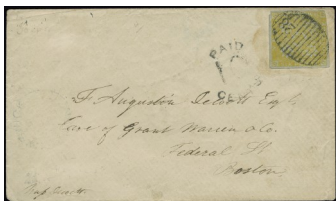 PAID
F. Augustin
Care of Grant Warren & Co.
Federal St
Boston